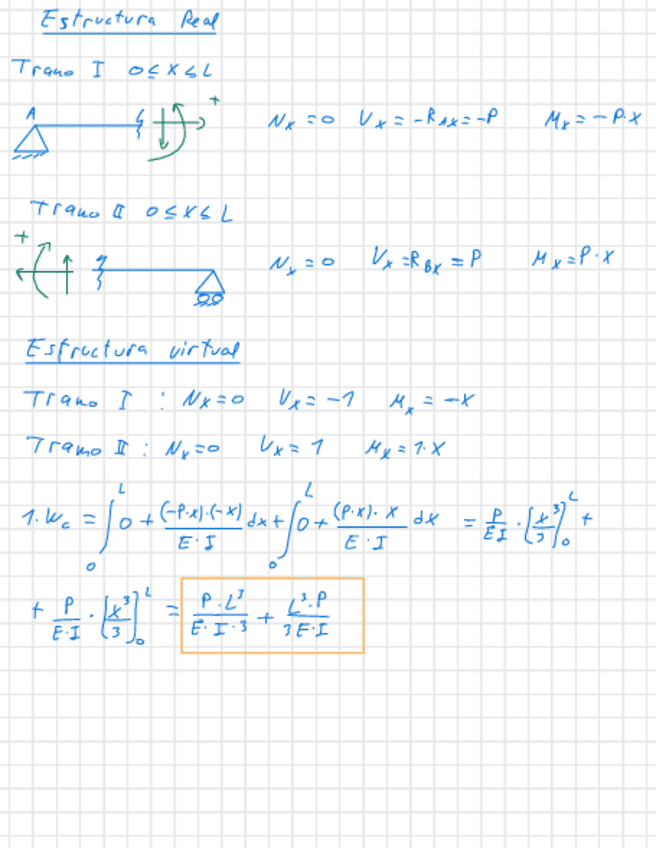 Estructura Real
Tramo I 0≤x≤L
A + Nx=0 Vx=-RAx=-P Mx=-P·x
Tramo II 0≤x≤L
+ Nx=0 Vx=RBx=P Mx=P·x
Estructura virtual
Tramo I : Nx=0 Vx=-1 Mx=-x
Tramo II : Nx=0 Vx=1 Mx=1·x
1·Wc = ∫₀ᴸ 0 + (-P·x)·(-x)/(E·I) dx + ∫₀ᴸ 0 + (P·x)·x/(E·I) dx = P/(EI) · [x³/3]₀ᴸ +
+ P/(E·I) · [x³/3]₀ᴸ = P·L³/(E·I·3) + L³·P/(3E·I)